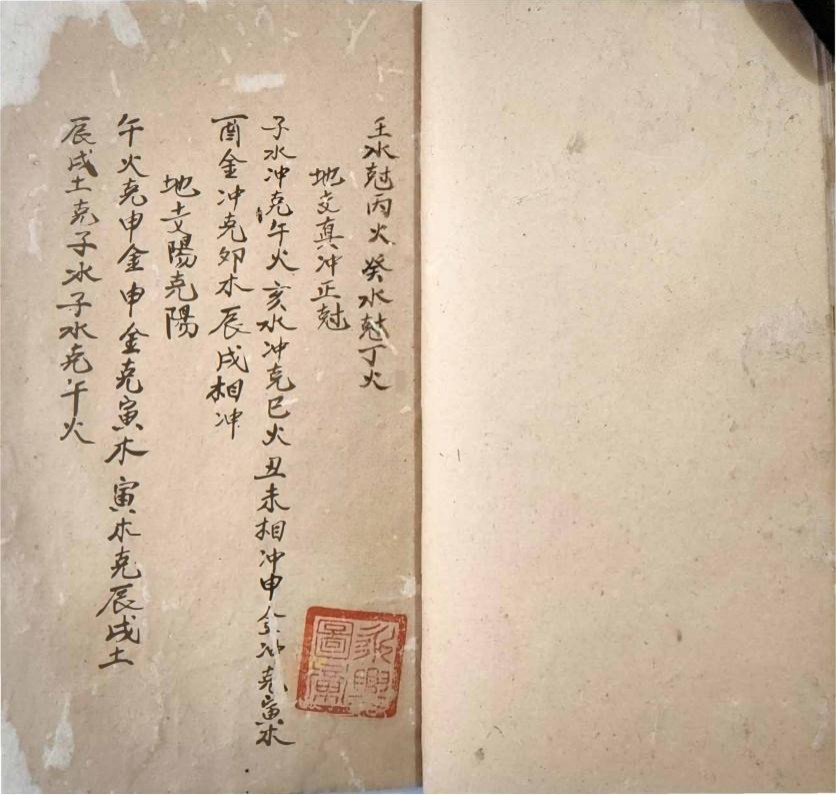 壬水尅丙火癸水尅丁火
地支真冲正尅
子水冲克午火亥水冲克巳火丑未相冲申金冲克寅木
酉金冲克卯木辰戌相冲
地支陽克陽
午火克申金申金克寅木寅木克辰戌土
辰戌土克子水子水克午火